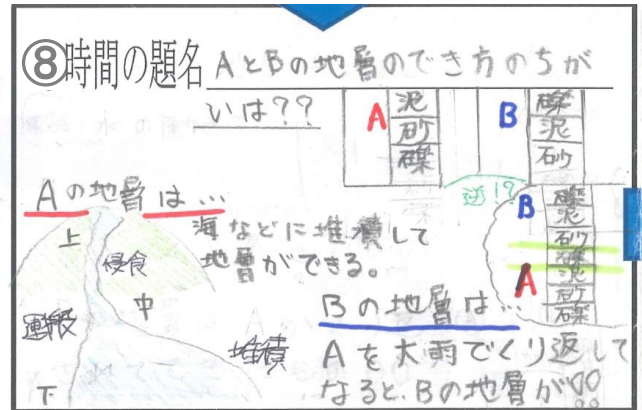 ⑧時間の題名 AとBの地層のでき方のちが
いは??
A 泥 砂 礫
B 礫 泥 砂
逆!?
Aの地層は…
海などに堆積して
地層ができる。
上
侵食
中
運搬
堆積
下
B 礫 泥 砂
A 礫 泥 砂 礫
Bの地層は…
Aを大雨でくり返して
なると、Bの地層が